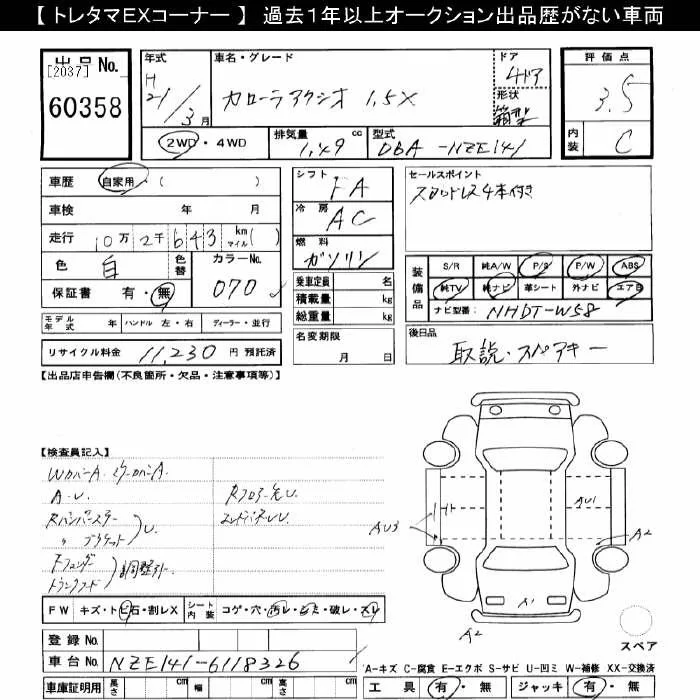 【 トレタマEXコーナー 】 過去１年以上オークション出品歴がない車両
出品No.
[2037]
60358
年式
H
21/3月
車名・グレード
カローラアクシオ 1.5X
ドア
4ドア
形状
箱型
評価点
3.5
内装
C
2WD・4WD
排気量
1.49 cc
型式
DBA-NZE141
車歴 自家用・( )
車検 年 月
走行 10万2千643 km マイル( )
色 白 色替 カラーNo. 070
保証書 有・無
モデル年式 年 ハンドル 左・右 ディーラー・並行
リサイクル料金 11,230 円 預託済
シフト FA
冷房 AC
燃料 ガソリン
乗車定員 名
積載量 kg
総重量 kg
名変期限
月 日
セールスポイント
スタッドレス4本付き
装備品
S/R 純A/W P/S P/W ABS
純TV 純ナビ 革シート 外ナビ エアB
ナビ型番: NHDT-W58
後日品
取説・スペアキー
【出品店申告欄(不良箇所・欠品・注意事項等)】
【検査員記入】
WカバーA
A・U
Rバンパーステー
〃 ブラケット
U
Rフロア先U
Fフェンダー
トランクフード
調整
AU3
AU1
A2
A1
A2
スペア
FW キズ・トビ石・割レX シート内装 コゲ・穴・
・破レ・スレ
登録 No.
車台 No. NZE141-6118326
車庫証明用 長さ cm 幅 cm 高さ cm
A-キズ C-腐食 E-エクボ S-サビ U-凹ミ W-補修 XX-交換済
工具 有・無 ジャッキ 有・無